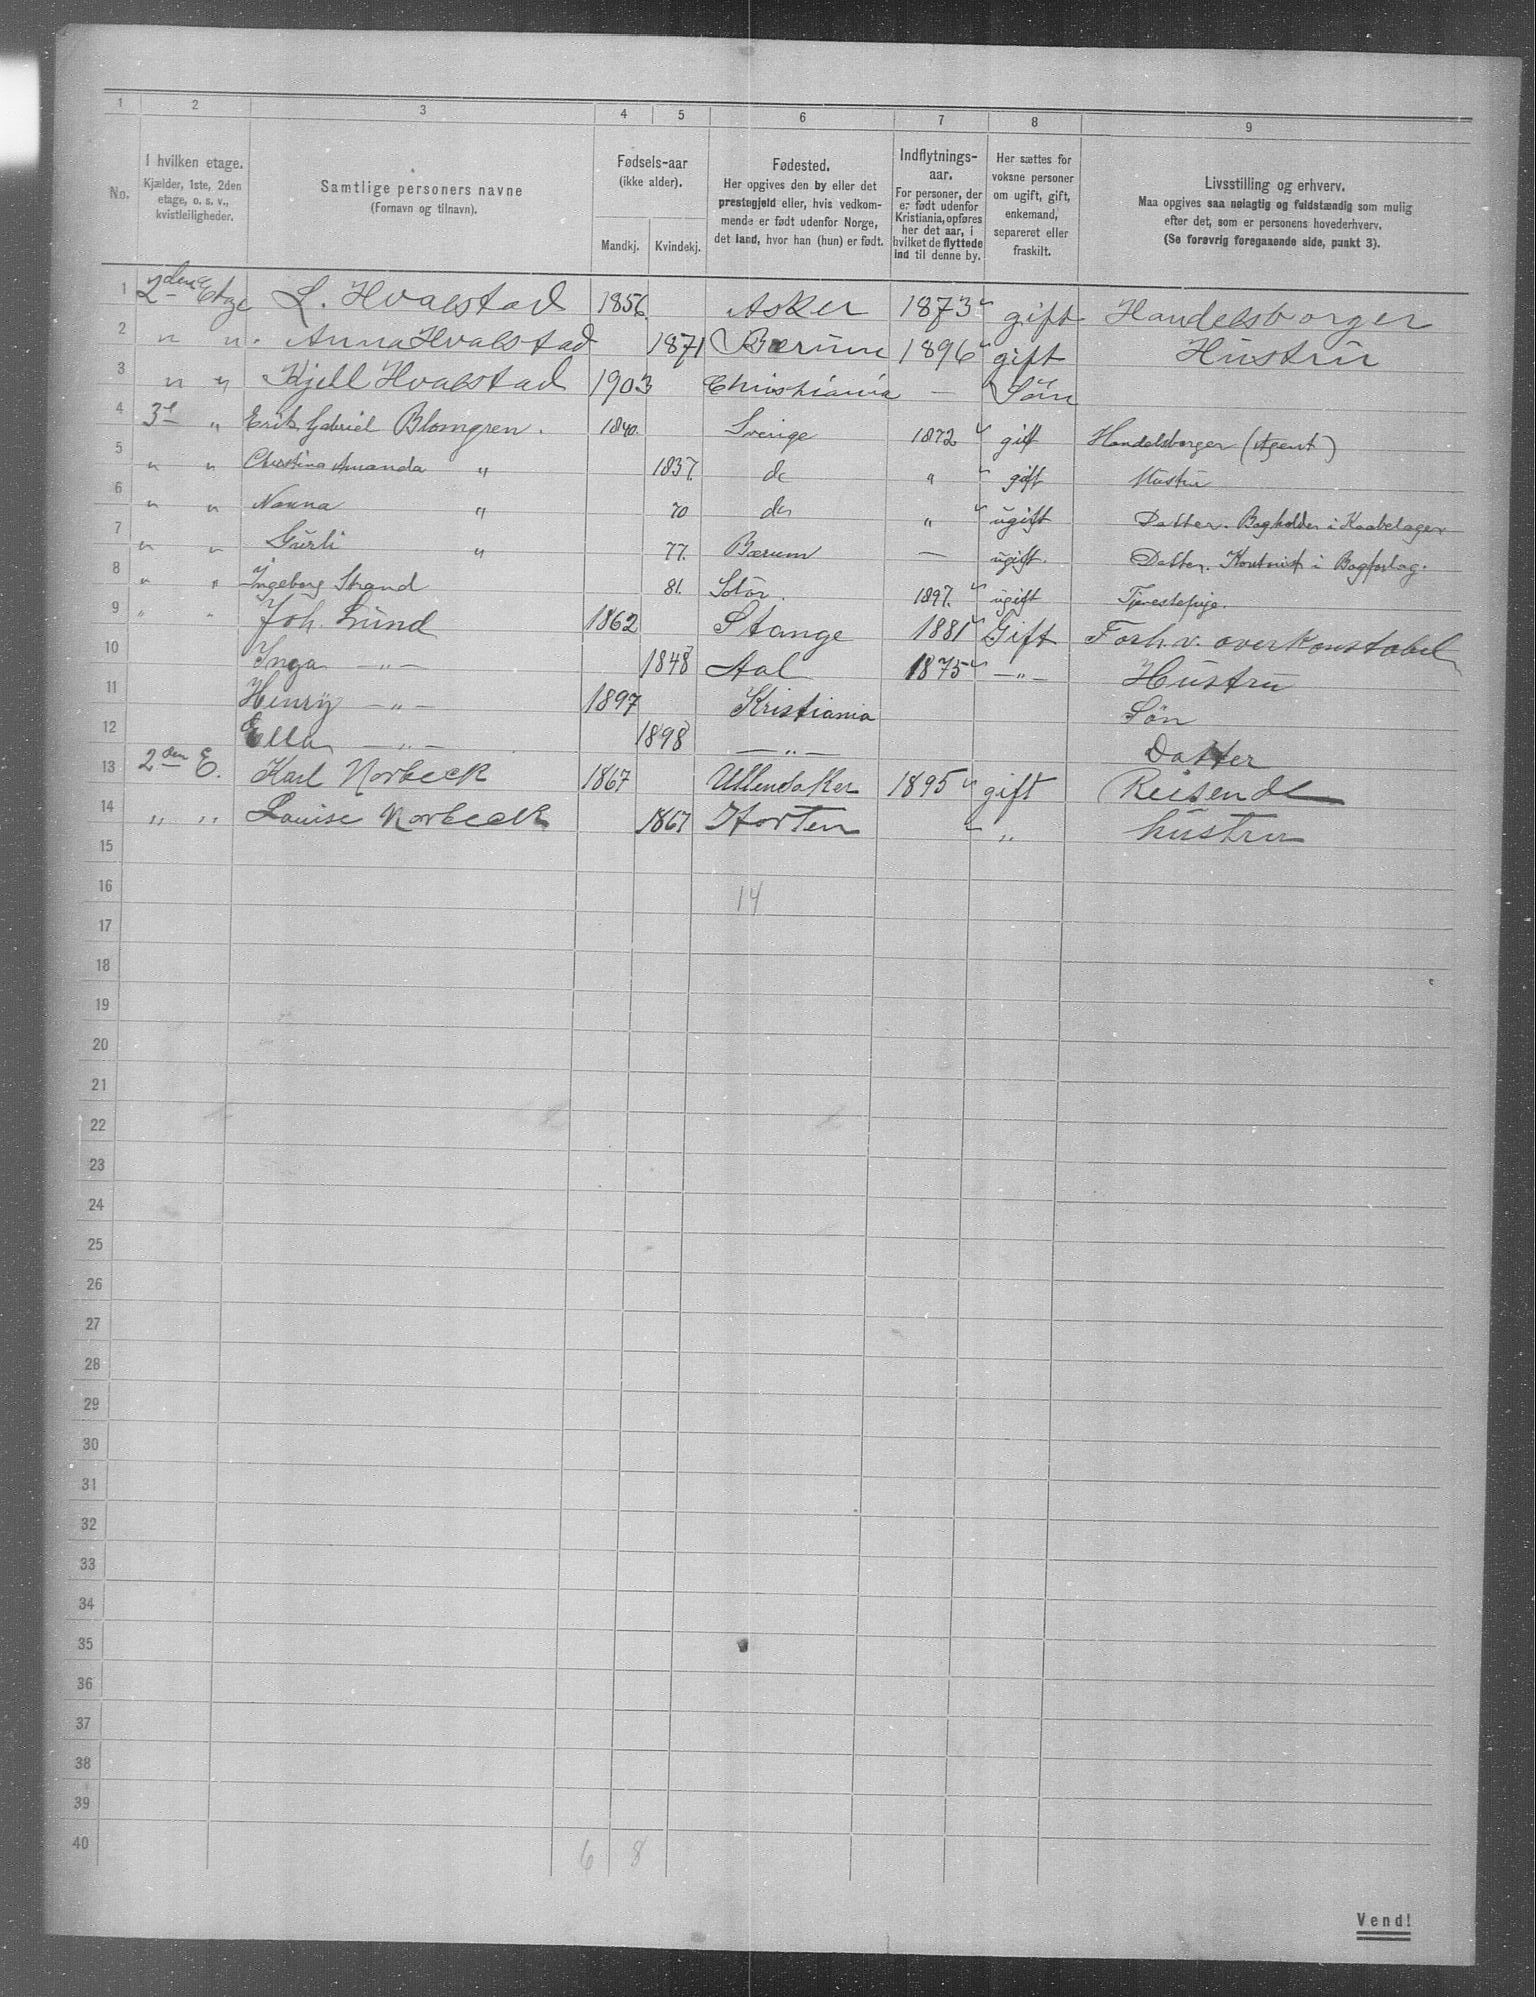 1 2 3 4 5 6 7 8 9
No.
I hvilken etage.
Kjælder, 1ste, 2den
etage, o. s. v.,
kvistleiligheder.
Samtlige personers navne
(Fornavn og tilnavn).
Fødsels-aar
(ikke alder).
Mandkj. Kvindekj.
Fødested.
Her opgives den by eller det
prestegjeld eller, hvis vedkom-
mende er født udenfor Norge,
det land, hvor han (hun) er født.
Indflytnings-
aar.
For personer, der
er født udenfor
Kristiania, opføres
her det aar, i
hvilket de flyttede
ind til denne by.
Her sættes for
voksne personer
om ugift, gift,
enkemand,
separeret eller
fraskilt.
Livsstilling og erhverv.
Maa opgives saa nøiagtig og fuldstændig som mulig
efter det, som er personens hovederhverv.
(Se forøvrig foregaaende side, punkt 3).
1 2den Etage L. Hvalstad 1856 Asker 1873 gift Handelsborger
2 " " Anna Hvalstad 1871 Bærum 1896 gift Hustru
3 " " Kjell Hvalstad 1903 Christiania — Søn
4 3e " Erik Gabriel Blomgren. 1840. Sverige 1872 gift Handelsborger (Agent)
5 " " Christina Amanda " 1837. do " gift Hustru
6 " " Nanna " 70 do " ugift Datter. Bogholder i Kaabelager
7 " " Gurli " 77. Bærum — ugift. Datter. Kontorist i Bogforlag.
8 " " Ingeborg Strand 81. Solør. 1897. ugift Tjenestepige.
9 " " Joh. Lund 1862 Stange 1881 Gift Forh.v. overkonstabel
10 Inga — " — 1848 Aal 1875 — " — Hustru
11 Henry — " — 1897 Kristiania Søn
12 Ella — " — 1898 — " — Datter
13 2den E. Karl Norbeck 1867 Ullensaker 1895 gift Reisende
14 " " Louise Norbeck 1867 Horten " hustru
15
16 14
17
18
19
20
21
22
23
24
25
26
27
28
29
30
31
32
33
34
35
36
37
38
39
40 6 8
Vend!